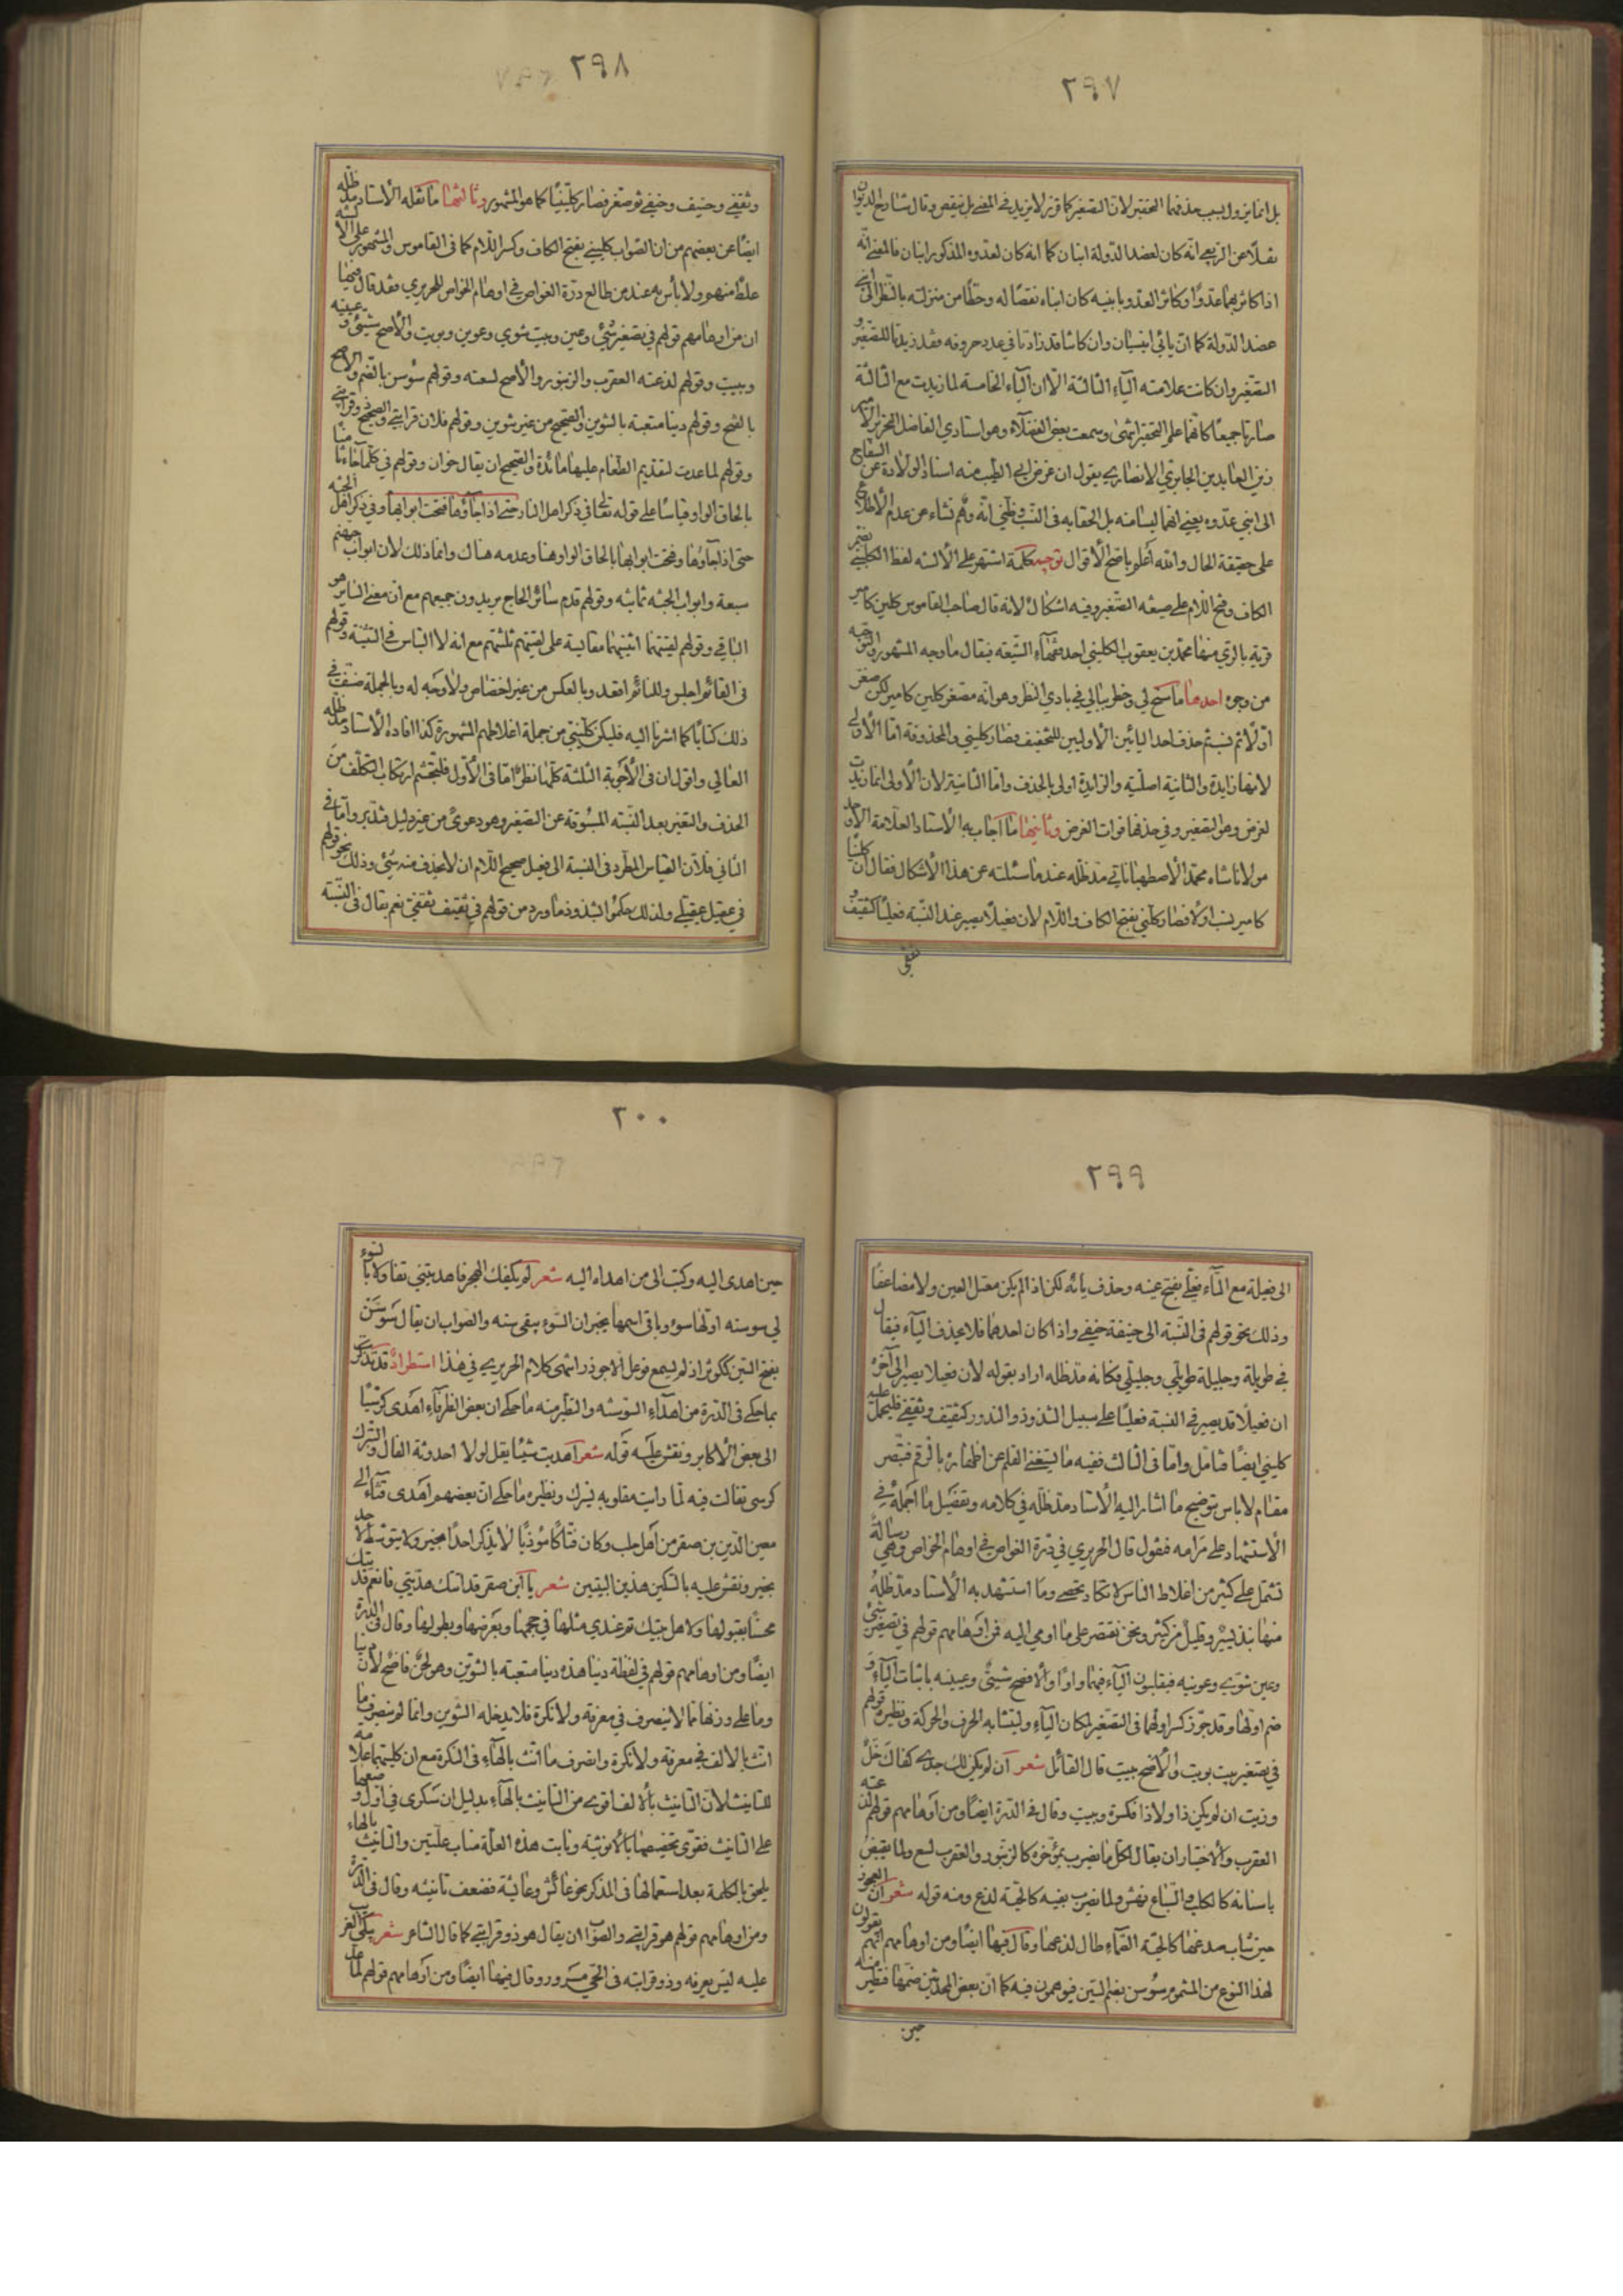 ٢٩٧
بل انما يزول بسبب حذفهما التحقير لان التصغير كما قرر لا يزيد في المعنى بل ينقص وقال شارح الديوان
نقلا عن الربعي انه كان لعضد الدولة ابنان كما انه كان لعدوه المذكور ابنان فالمعنى انه
اذا كاثر بهما عدوا وكاثر العدو بابنيه كان ابناه نقصا له وحطا من منزلته بالنظر الى ابني
عضد الدولة كما ان يائي انيسيان وان كانتا قد زادتا في عدد حروفه فقد زيدتا للتصغير و
التصغير وان كانت علامته الياء الثالثة الا ان الياء الخامسة لما زيدت مع الثالثة
صارتا جميعا كانهما علم التحقير انتهى وسمعت بعض الفضلاء وهو استادي الفاضل النحرير الامير
زين العابدين الجابري الانصاري يقول ان غرض ابي الطيب منه اسناد الولادة عن السفاح
الى ابني عدوه يعني انهما ليسا منه بل الحقا به في النسب وظني انه وهم نشاء عن عدم الاطلاع
على حقيقة الحال والله اعلم باصح الاقوال توجيه كلمة اشتهر على الالسنه لفظ الكليني بضم
الكاف وفتح اللام على صيغه التصغير وفيه اشكال لانه قال صاحب القاموس كلين كامير
قرية بالري منها محمد بن يعقوب الكليني احد فقهاء الشيعه فيقال ما وجه المشهور والتوجيه
من وجوه احدها ما سنح لي وخطر ببالي في بادي النظر وهو انه مصغر كلين كامير لكن صغر
اولا ثم نسب ثم حذف احد اليائين الاوليين للتخفيف فصار كليني والمحذوفة اما الاولى
لانها زايدة والثانية اصلية والزايدة اولى بالحذف واما الثانية لان الاولى انما زيدت
لغرض وهو التصغير وفي حذفها فوات الغرض وثانيها ما اجاب به الاستاد العلامة الاوحد
مولانا شاه محمد الاصطهباناتي مد ظله عند ما سئلته عن هذا الاشكال فقال ان كلينا
كامير نسب اولا فصار كلني بفتح الكاف واللام لان فعيلا يصير عند النسبة فعليا كثقيف و
ثقفي
٢٩٨
وثقفي وحنيف وحنفي ثم صغر فصار كلينيا كما هو المشهور وثالثها ما نقله الاستاد مد ظله
ايضا عن بعضهم من ان الصواب كليني بفتح الكاف وكسر اللام كما في القاموس والمشهور على الالسنه
غلط منهم ولا باس به عند من طالع درة الغواص في اوهام الخواص للحريري فقد قال فيها
ان من اوهامهم قولهم في تصغير شئ وعين وبيت شوي وعوين وبويت والاصح شيئ و عيينه
وبييت وقولهم لدغته العقرب والزنبور والاصح لسعته وقولهم سوسن بالضم والاصح
بالفتح وقولهم دينا متعبة بالتنوين والصحيح من غير تنوين وقولهم فلان قرابتي والصحيح ذو قرابتي
وقولهم لما عدت لتقديم الطعام عليها مائدة والصحيح ان يقال خوان وقولهم في كلما
بالحاق الواو قياسا على قوله تعالى في ذكر اهل النار حتى اذا جاؤها فتحت ابوابها وفي ذكر اهل الجنه
حتى اذا جاؤها وفتحت ابوابها بالحاق الواو هنا وعدمه هناك وانما ذلك لان ابواب جهنم
سبعة وابواب الجنه ثمانيه وقولهم قدم سائر الحاج يريدون جميعهم مع ان معنى السائر هو
الباقي وقولهم لقيتهما اثنيهما مقايسة على لقيتهم ثلثتهم مع انه لا التباس في التثنية وقولهم
في القائم اجلس وللنائم اقعد وبالعكس من غير اختصاص ولا وجه له وبالجملة صنف في
ذلك كتابا كما اشرنا اليه فليكن كليني من جملة اغلاطهم المشهورة كذا افاده الاستاد مد ظله
العالي واقول ان في الاجوبة الثلثة كلها نظر اما في الاول فلتجشم ارتكاب التكلف من
الحذف والتغير بعد النسبة المسبوقة عن التصغير وهو دعوى من غير دليل فتدبر واما في
الثاني فلان القياس المطرد في النسبة الى فعيل صحيح اللام ان لا يحذف منه شئ وذلك نحو قولهم
في عقيل عقيلي ولذلك حكموا بشذوذ ما ورد من قولهم في ثقيف ثقفي نعم يقال في النسبة
٢٩٩
الى فعيلة مع التاء فعلي بفتح عينه وحذف يائه لكن اذا لم يكن معتل العين ولا مضاعفا
وذلك نحو قولهم في النسبة الى حنيفة حنفي واذا كان احدهما فلا يحذف الياء فيقال
في طويلة وجليلة طويلي وجليلي فكانه مد ظله اراد بقوله لان فعيلا يصير الى اخره
ان فعيلا قد يصير في النسبة فعليا على سبيل الشذوذ والندور كثقيف وثقفي فليحمل عليه
كليني ايضا فتامل واما في الثالث ففيه ما يستغنى القلم عن اظهاره بالرقم فتبصر
مقام لا باس بتوضيح ما اشار اليه الاستاد مد ظله في كلامه وتفصيل ما اجمله في
الاستشهاد على مرامه فنقول قال الحريري في درة الغواص في اوهام الخواص وهي رسالة
تشتمل على كثير من اغلاط الناس لا تكاد تحصى وما استشهد به الاستاد مد ظله
منها نبذ يسير وقليل من كثير ونحن نقتصر على ما اومى اليه فمن اوهامهم قولهم في تصغير شئ
وعين شوي وعوينه فيقلبون الياء فيهما واوا والافصح شييئ وعيينه باثبات الياء و
ضم اولها وقد جوز كسر اولهما في التصغير لمكان الياء وليتشابه الحرف والحركة ونظيره قولهم
في تصغير بيت بويت والافصح بييت قال القائل شعر ان لم يكن لك جدي كفاك خل
وزيت ان لم يكن ذا ولا ذا فكسرة وبييت وقال في الدرة ايضا ومن اوهامهم قولهم لدغته
العقرب والاختيار ان يقال لكل ما يضرب بمؤخره كالزنبور والعقرب لسع ولما يقبض
باسنانه كالكلب والسباع نهش ولما يضرب بفيه كالحية لدغ ومنه قوله شعر ان العجوز
حين شاب صدغها كالحية الصماء طال لدغها وقال فيها ايضا ومن اوهامهم انهم يقولون
لهذا النوع من المشموم سوسن بضم السين فيوهمون فيه كما ان بعض المحدثين ضمها فتطير منه
حين
٣٠٠
حين اهدى اليه وكتب الى من اهداه اليه شعر لم يكفك الهجر فاهديتني تفاولا بالسوء
لي سوسنه اولها سوء وباقي اسمها يخبر ان السوء يبقى سنه والصواب ان يقال سوسن
بفتح السين ككوثر اذ لم يسمع فوعل الا جوذر انتهى كلام الحريري في هذا استطراد قد تذكرت
بما حكي في الدرة من اهداء السوسنه والتطير منه ما حكي ان بعض الظرفاء اهدى كرسيا
الى بعض الاكابر ونقش عليه قوله شعر اهديت شيئا يقل لولا احدوثة الفال والتبرك
كرسي تفالت فيه لما رايت مقلوبه يسرك ونظيره ما حكي ان بعضهم اهدى قثاء الى
معين الدين بن صقر من اهل حلب وكان فتاكا مؤذيا لا يذكر احدا بخير ولا يتوسط لاحد
بخير ونقش عليه بالسكين هذين البيتين شعر يا ابن صقر قد اتتك هديتي فانعم قد يتك
محسنا بقبولها ولاهل بيتك قد عندي مثلها في حجمها وبعرضها وبطولها وقال في الدرة
ايضا ومن اوهامهم قولهم في لفظة دنيا هذه دنيا متعبه بالتنوين وهو لحن فاضح لان دنيا
وما على وزنها مما لا ينصرف في معرفة ولا نكرة فلا يدخله التنوين وانما لم ينصرف ما
انث بالالف في معرفة ولا نكرة وانصرف ما انث بالهاء في النكرة مع ان كليهما علامة
للتانيث لان التانيث بالالف اقوى من التانيث بالهاء بدليل ان سكرى في اول وضعها
على التانيث فقوى تخصيصها بالانوثيه ونابت هذه العلة مناب علتين والتانيث بالهاء
يلحق بالكلمة بعد استعمالها في المذكر نحو عائش وعائشة فضعف تانيثه وقال في الدرة
ومن اوهامهم قولهم هو قرابتي والصواب ان يقال هو ذو قرابتي كما قال الشاعر شعر يبكي الغريب
عليه ليس يعرفه وذو قرابته في الحي مسرور وقال فيها ايضا ومن اوهامهم قولهم لما عد